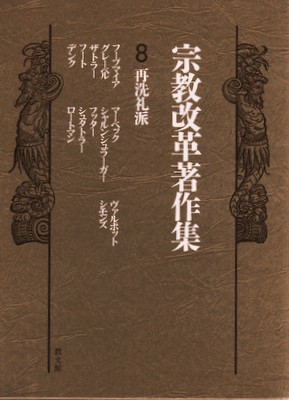 宗教改革著作集
8 再洗礼派
フープマイア
グレーベル
ザトラー
フート
デンク
マーペック
シャルンシュラーガー
フッター
シュタトラー
ロートマン
ヴァルポット
シモンズ
教文館